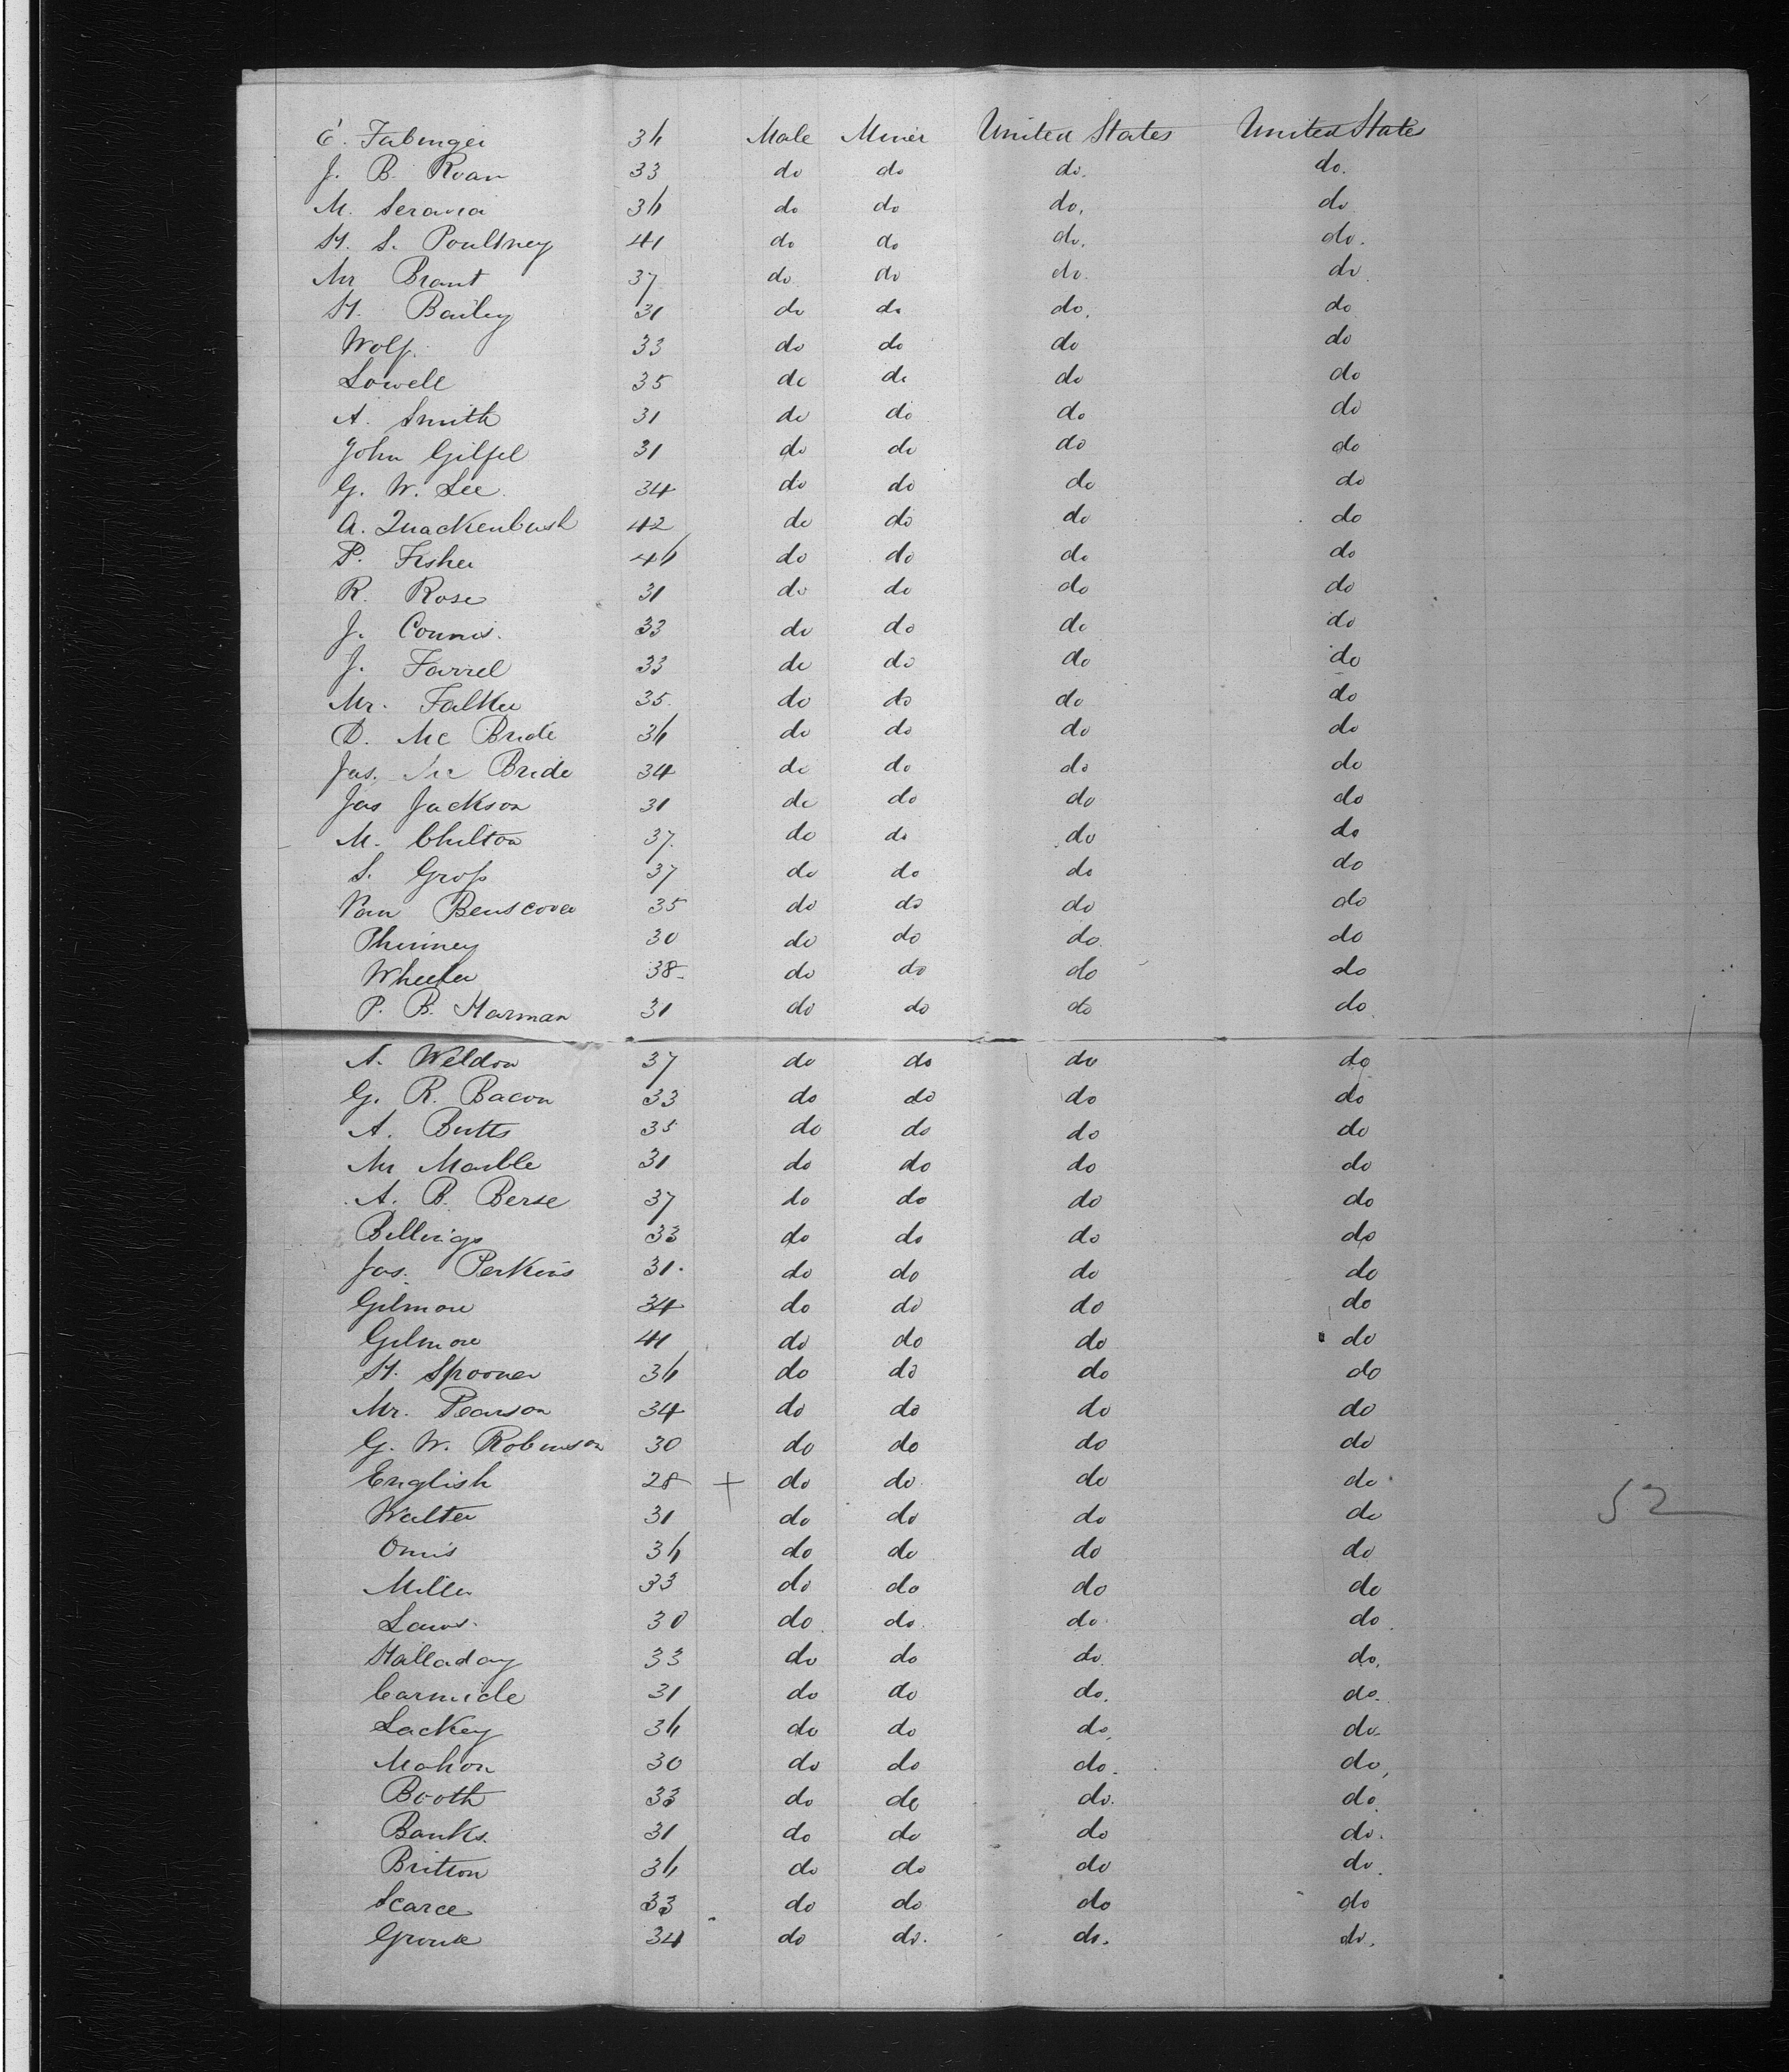 E. Fabinger 36 Male Miner United States United States
J. B. Roan 33 do do do. do.
M. Serana 36 do do do. do
H. S. Poultney 41 do do do. do.
Mr Brant 37 do do do. do
H. Bailey 31 do do do. do
Wolf. 33 do do do do
Lowell 35 do do do do
A. Smith 31 do do do do
John Gilfel 31 do do do do
G. W. Lee. 34 do do do do
A. Quackenbush 42 do do do do
P. Fisher 46 do do do do
R. Rose 31 do do do do
J. Connis. 33 do do do do
J. Farrel 33 do do do do
Mr. Falker 35. do do do do
D. Mc Bride 36 do do do do
Jas. Mc Bride 34 do do do do
Jas Jackson 31 do do do do
M. Chilton 37. do do do do
S. Gross 37 do do do do
Van Benscover 35 do do do do
Phinney 30 do do do do
Wheeler 38 do do do do
P. B. Harman 31 do do do do
A. Weldon 37 do do do do
G. R. Bacon 33 do do do do
A. Butts 35 do do do do
Mr Marble 31 do do do do
A. B. Berse 37 do do do do
Billings 33 do do do do
Jas. Perkins 31. do do do do
Gilmore 34 do do do do
Gilmore 41 do do do do
H. Spooner 36 do do do do
Mr. Pearson 34 do do do do
G. W. Robinson 30 do do do do
English 28 + do do do do
Walter 31 do do do do 52
Orris 36 do do do do
Miller 33 do do do do
Laws. 30 do do do do
Halladay 33 do do do. do.
Carmicle 31 do do do. do.
Lackey 36 do do do. do
Mahon 30 do do do. do.
Booth 33 do do do. do.
Banks. 31 do do do do.
Britton 36 do do do do.
Scarce 33 do do do do
Gronk 34 do do. do. do.